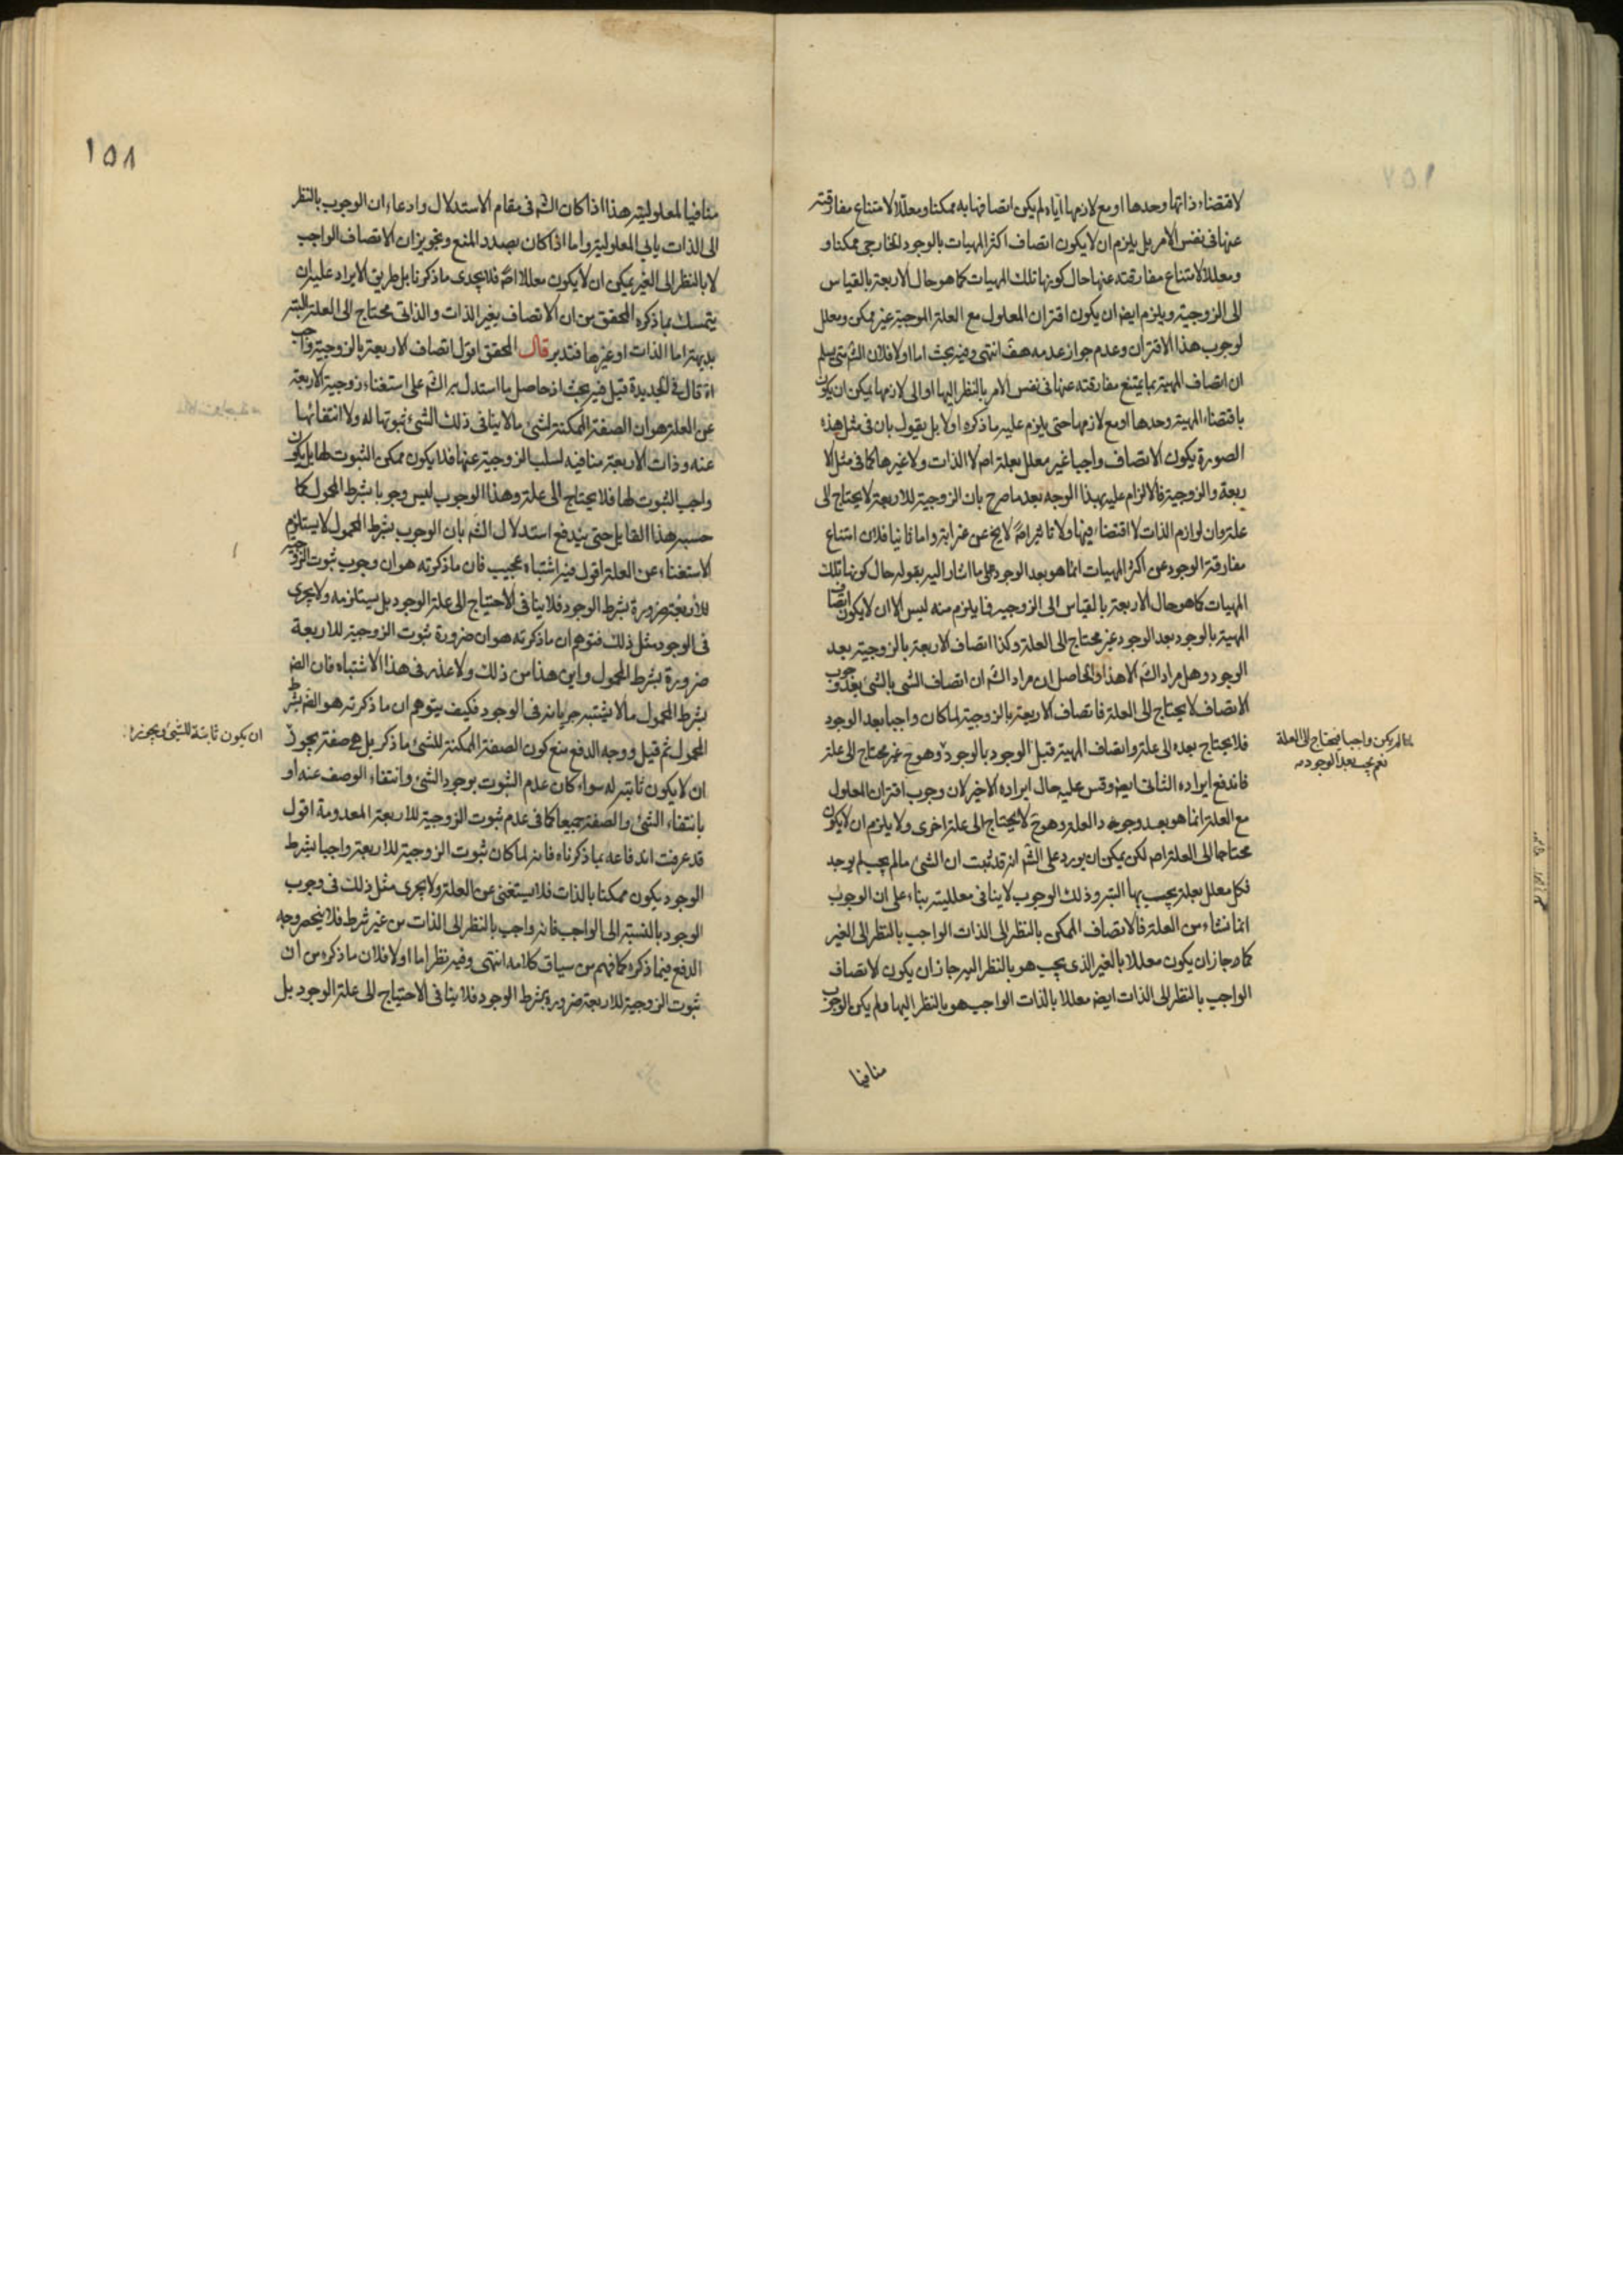 لاقتضاء ذاتها وحدها او مع لازمها اياه لم يكن اتصافها به ممكنا ومعللا لامتناع مفارقته
عنها فى نفس الامر بل يلزم ان لا يكون اتصاف اكثر المهيات بالوجود الخارجى ممكنا و
ومعللا لامتناع مفارقته عنها حال كونها تلك المهيات كما هو حال الاربعة بالقياس
الى الزوجية ويلزم ايض ان يكون اقتران المعلول مع العلة الموجبة غير ممكن ومعلل
لوجوب هذا الاقتران وعدم جواز عدمه هف انتهى وفيه بحث اما اولا فلان الش متى يسلم
ان اتصاف المهية بما يمتنع مفارقته عنها فى نفس الامر بالنظر اليها او الى لازمها يمكن ان يكون
باقتضاء المهية وحدها او مع لازمها حتى يلزم عليه ما ذكره اولا بل يقول بان فى مثل هذه
الصورة يكون الاتصاف واجبا غير معلل بعلة اصلا لا الذات ولا غيرها كما فى مثل الا
ربعة والزوجية فالالزام عليه بهذا الوجه بعد ما صرح بان الزوجية للاربعة لا يحتاج الى
علة وان لوازم الذات لا اقتضاء فيها ولا تاثير اصلا لا يخ عن غرابة واما ثانيا فلان امتناع
مفارقة الوجود عن اكثر المهيات انما هو بعد الوجود على ما اشار اليه بقوله حال كونها تلك
المهيات كما هو حال الاربعة بالقياس الى الزوجية فما يلزم منه ليس الا ان لا يكون اتصاف
المهية بالوجود بعد الوجود غير محتاج الى العلة وكذا اتصاف الاربعة بالزوجية بعد
الوجود وهل مراد الش الا هذا والحاصل ان مراد الش ان اتصاف الشى بالشى بعد وجوب
الاتصاف لا يحتاج الى العلة فاتصاف الاربعة بالزوجية لما كان واجبا بعد الوجود
فلا يحتاج بعده الى علة واتصاف المهية قبل الوجود بالوجود وهو ح غير محتاج الى علة
لما لم يكن واجبا فيحتاج الى العلة
نعم يجب بعد الوجود
فاندفع ايراده الثانى ايض وقس عليه حال ايراده الاخير لان وجوب اقتران المعلول
مع العلة انما هو بعد وجود العلة وهو ح لا يحتاج الى علة اخرى ولا يلزم ان لا يكون
محتاجا الى العلة اصلا لكن يمكن ان يورد على الش انه قد ثبت ان الشى ما لم يجب لم يوجد
فكل معلل بعلة يجب بها البتة وذلك الوجوب لا ينافى معلليته بناء على ان الوجوب
انما نشاء من العلة فالاتصاف الممكن بالنظر الى الذات الواجب بالنظر الى الغير
كما جاز ان يكون معللا بالغير الذى يجب هو بالنظر اليه جاز ان يكون لاتصاف
الواجب بالنظر الى الذات ايض معللا بالذات الواجب هو بالنظر اليها ولم يكن الوجوب
منافيا
١٥٨
منافيا لمعلوليته هذا اذا كان الش فى مقام الاستدلال وادعاء ان الوجوب بالنظر
الى الذات يابى المعلولية واما اذا كان بصدد المنع وتجويز ان الاتصاف الواجب
لا بالنظر الى الغير يمكن ان لا يكون معللا اصلا فلا يجدى ما ذكرنا بل طريق الايراد عليه ان
يتمسك بما ذكره المحقق من ان الاتصاف بغير الذات والذاتى محتاج الى العلة البتة
بديهة اما الذات او غيرها فتدبر قال المحقق اقول اتصاف الاربعة بالزوجية واجب
اه قال فى الجديدة قيل فيه بحث اذ حاصل ما استدل به الش على استغناء زوجية الاربعة
عن العلة هو ان الصفة الممكنة لشى ما لا ينافى ذلك الشى ثبوتها له ولا انتفائها
عنه وذات الاربعة منافية لسلب الزوجية عنها فلا يكون ممكن الثبوت لها بل يكون
واجب الثبوت لها فلا يحتاج الى علة وهذا الوجوب ليس وجوبا بشرط المحمول كما
حسبه هذا القايل حتى يندفع استدلال الش بان الوجوب بشرط المحمول لا يستلزم
الاستغناء عن العلة اقول فيه اشتباه عجيب فان ما ذكرته هو ان وجوب ثبوت الزوجية
للاربعة ضرورة بشرط الوجود فلا ينافى الاحتياج الى علة الوجود بل يستلزمه ولا يجرى
فى الوجود مثل ذلك فتوهم ان ما ذكرته هو ان ضرورة ثبوت الزوجية للاربعة
ضرورة بشرط المحمول واين هذا من ذلك ولا عذر فى هذا الاشتباه فان الض
بشرط المحمول ما لا يشتبه جريانه فى الوجود فكيف يتوهم ان ما ذكرته هو الض بشرط
المحمول ثم قيل ووجه الدفع منع كون الصفة الممكنة للشى ما ذكر بل هى صفة يجوز
ان يكون ثابتة للشى ويجوز
ان لا يكون ثابتة له سواء كان عدم الثبوت بوجود الشى وانتفاء الوصف عنه او
بانتفاء الشى والصفة جميعا كما فى عدم ثبوت الزوجية للاربعة المعدومة اقول
قد عرفت اندفاعه بما ذكرناه فانه لما كان ثبوت الزوجية للاربعة واجبا بشرط
الوجود يكون ممكنا بالذات فلا يستغنى عن العلة ولا يجرى مثل ذلك فى وجوب
الوجود بالنسبة الى الواجب فانه واجب بالنظر الى الذات من غير شرط فلا ينحصر وجه
الدفع فيما ذكره كما فهم من سياق كلامه انتهى وفيه نظر اما اولا فلان ما ذكره من ان
ثبوت الزوجية للاربعة ضرورة بشرط الوجود فلا ينافى الاحتياج الى علة الوجود بل